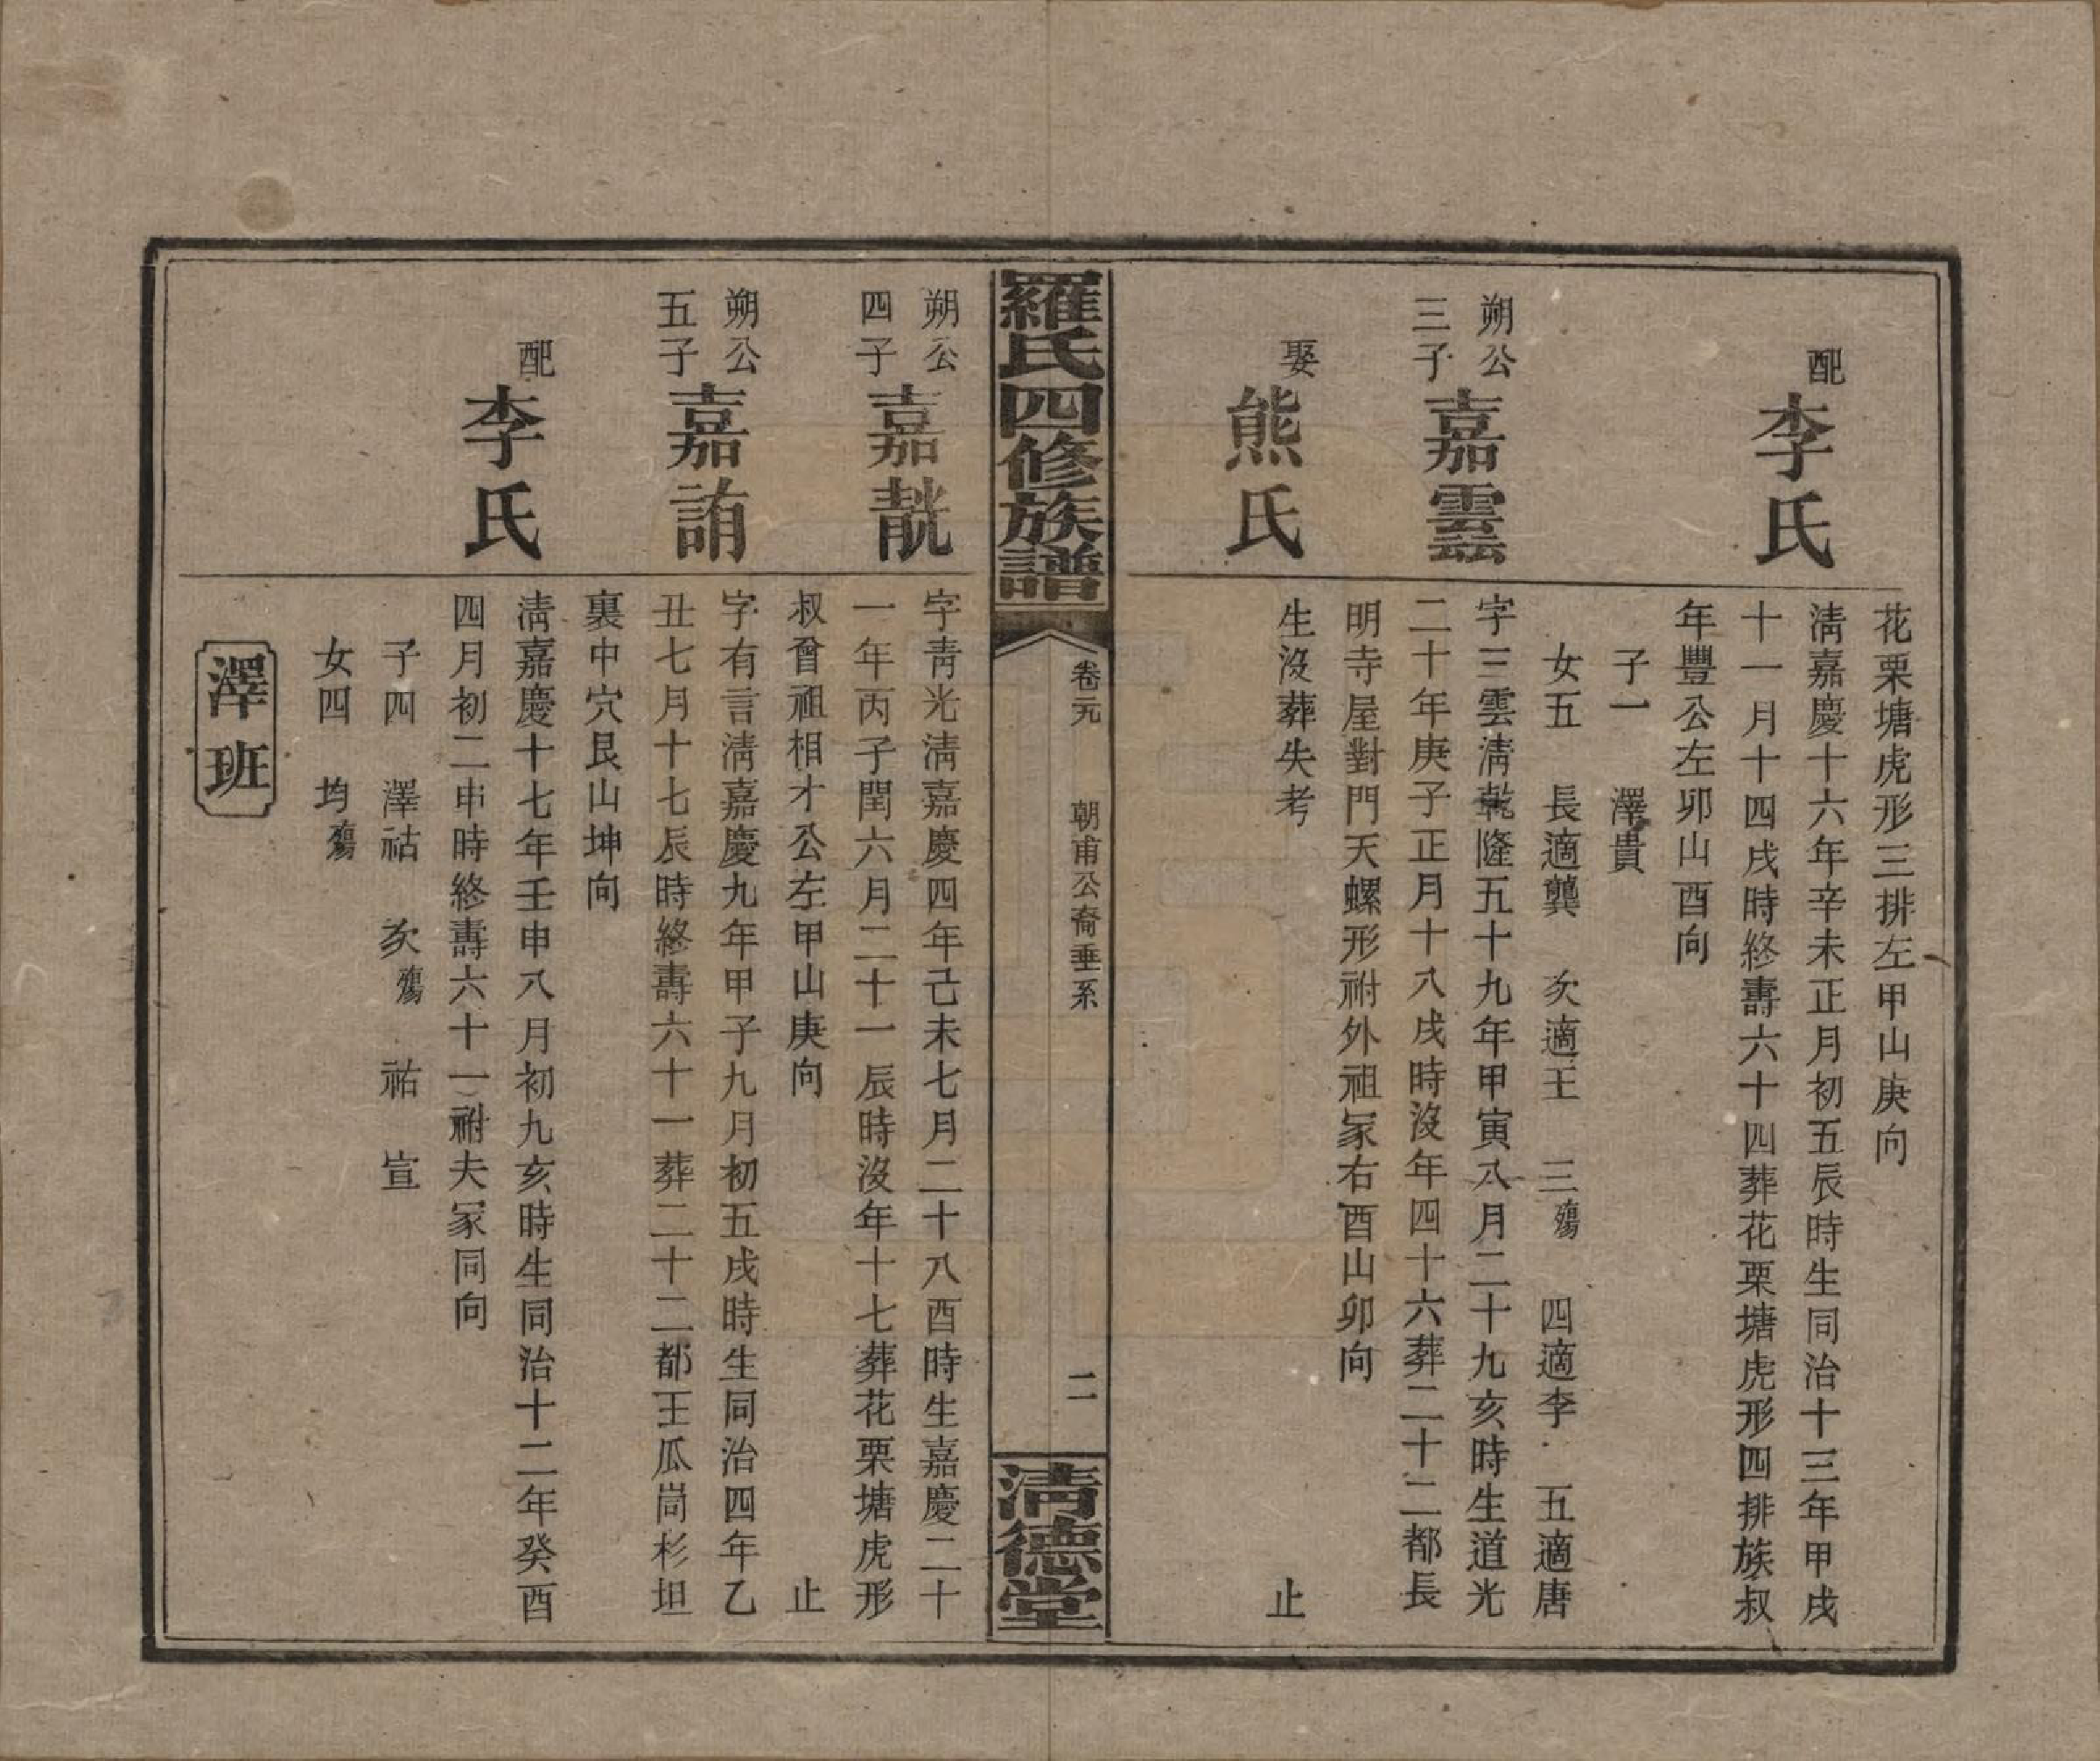 花栗塘虎形三排左甲山庚向
配李氏
淸嘉慶十六年辛未正月初五辰時生同治十三年甲戌
十一月十四戌時終壽六十四葬花栗塘虎形四排族叔
年豐公左卯山酉向
子一　澤貴
女五　長適龔　次適王　三殤　四適李　五適唐
朔公三子嘉雲
字三雲淸乾隆五十九年甲寅八月二十九亥時生道光
二十年庚子正月十八戌時沒年四十六葬二十二都長
明寺屋對門天螺形祔外祖冢右酉山卯向
娶熊氏
生沒葬失考　止
羅氏四修族譜
卷元　朝甫公裔垂系　二
淸德堂
朔公四子嘉
字靑光淸嘉慶四年己未七月二十八酉時生嘉慶二十
一年丙子閏六月二十一辰時沒年十七葬花栗塘虎形
叔曾祖相才公左甲山庚向　止
朔公五子嘉詴
字有言淸嘉慶九年甲子九月初五戌時生同治四年乙
丑七月十七辰時終壽六十一葬二十二都王瓜崗杉坦
裏中穴艮山坤向
配李氏
淸嘉慶十七年壬申八月初九亥時生同治十二年癸酉
四月初二申時終壽六十一祔夫冢同向
子四　澤祜　次殤　祐　宣
女四　均殤
澤班